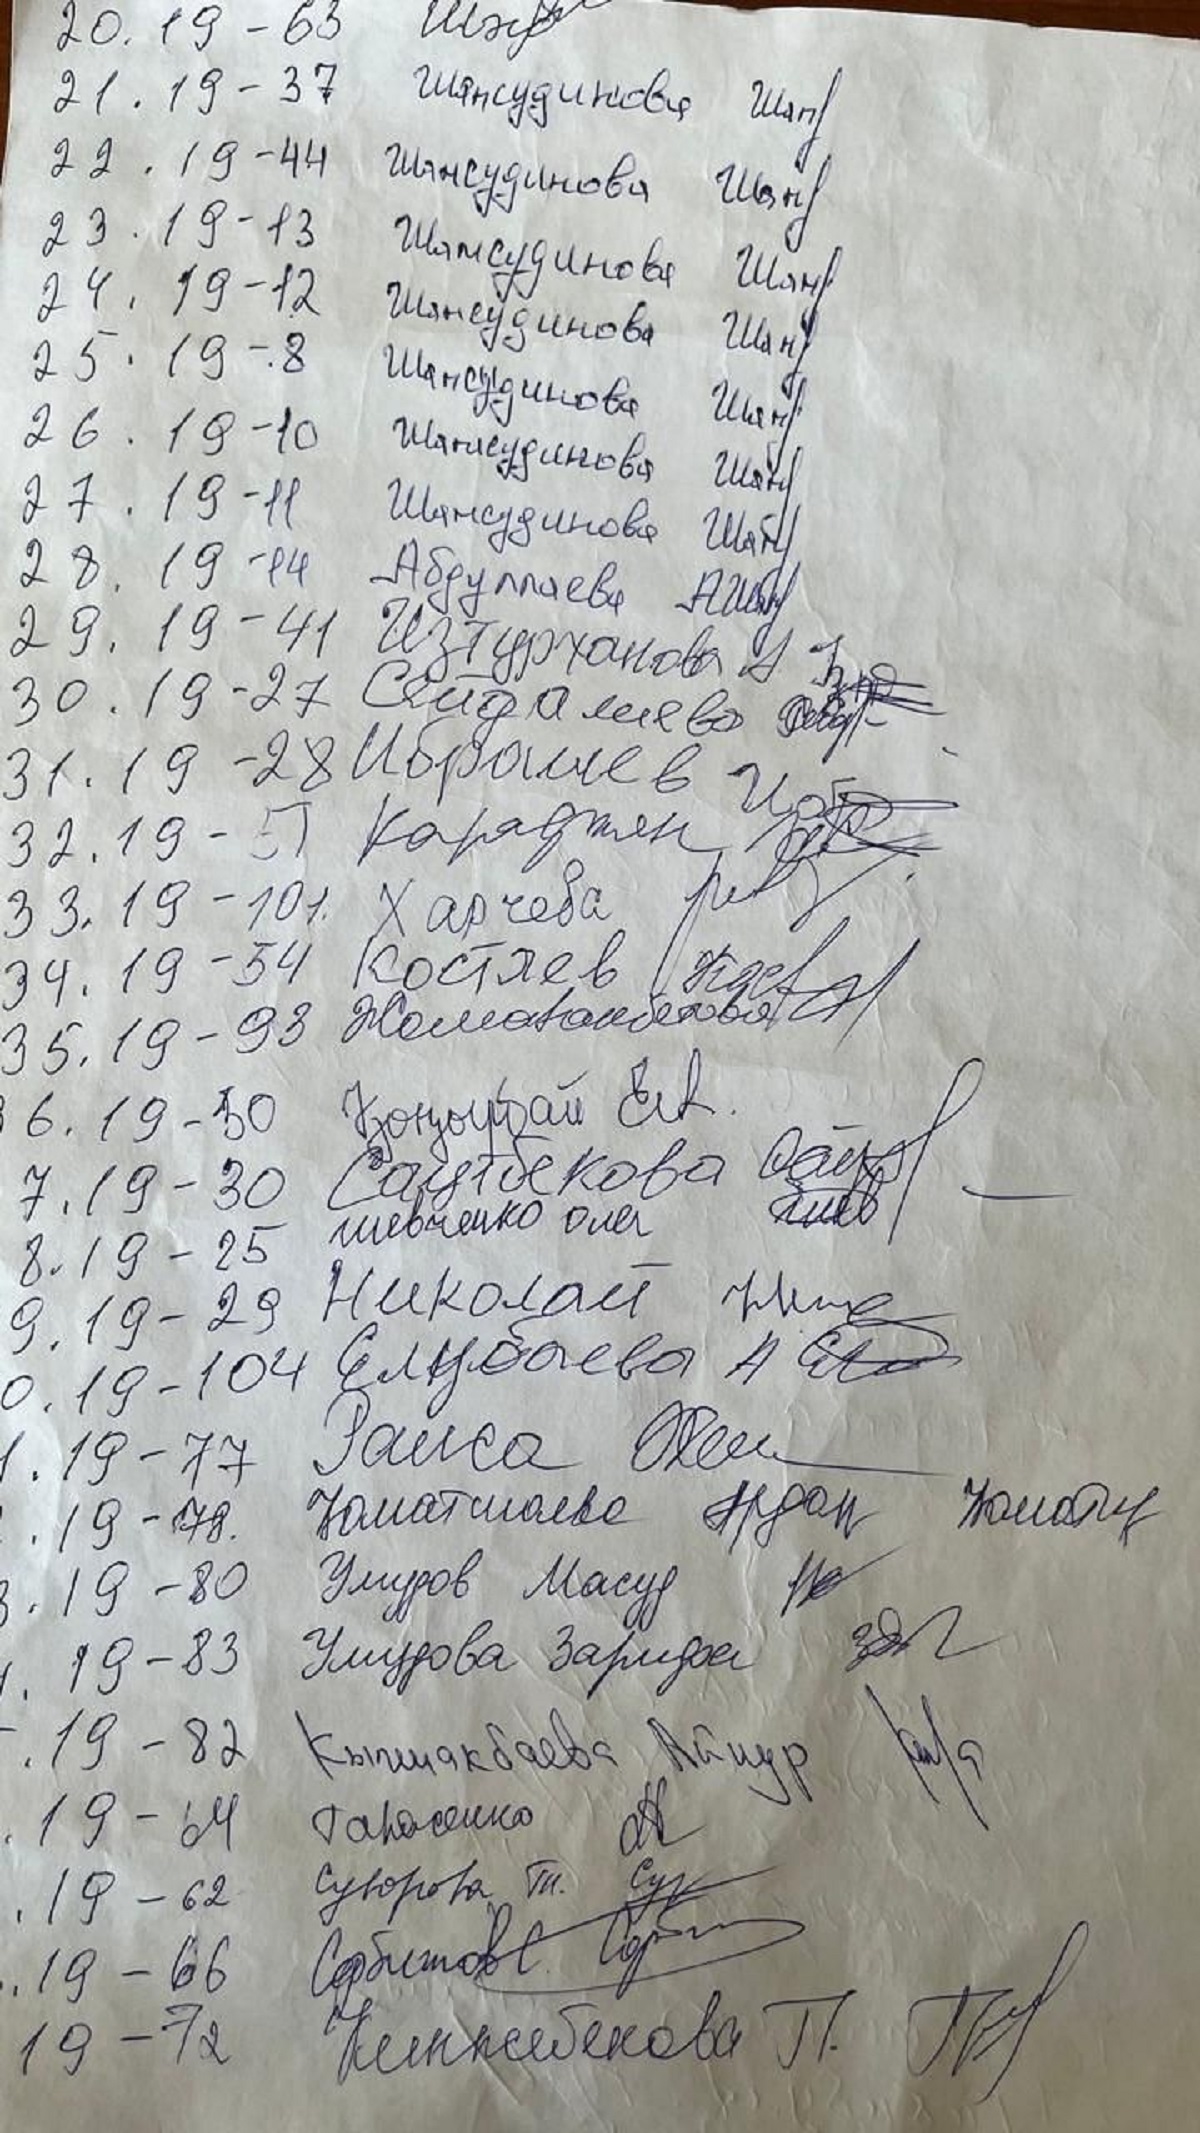 20. 19 - 63
21. 19 - 37 Шамсудинова Шам
22. 19 - 44 Шамсудинова Шам
23. 19 - 13 Шамсудинова Шам
24. 19 - 12 Шамсудинова Шам
25. 19 - 8 Шамсудинова Шам
26. 19 - 10 Шамсудинова Шам
27. 19 - 11 Шамсудинова Шам
28. 19 - 14 Абдуллаева
29. 19 - 41 Изтурханова А
30. 19 - 27 Сейдалиева
31. 19 - 28 Ибрашев
32. 19 - 51 Караджян
33. 19 - 101. Харчева
34. 19 - 54 Костяев
35. 19 - 93
6. 19 - 50
7. 19 - 30 Саутбекова
8. 19 - 25 Шевченко Олег
9. 19 - 29 Николай
0. 19 - 104 Елубаева А
1. 19 - 77 Раиса
. 19 - 78.
3. 19 - 80 Умудов Масуд
. 19 - 83 Умудова Зарида
. 19 - 82 Кыпшакбаева Айнур
. 19 - 64 Тарасенко
. 19 - 62 Суворова Тт.
. 19 - 66 Сабитов С.
19 - 72 Кинжебекова П.